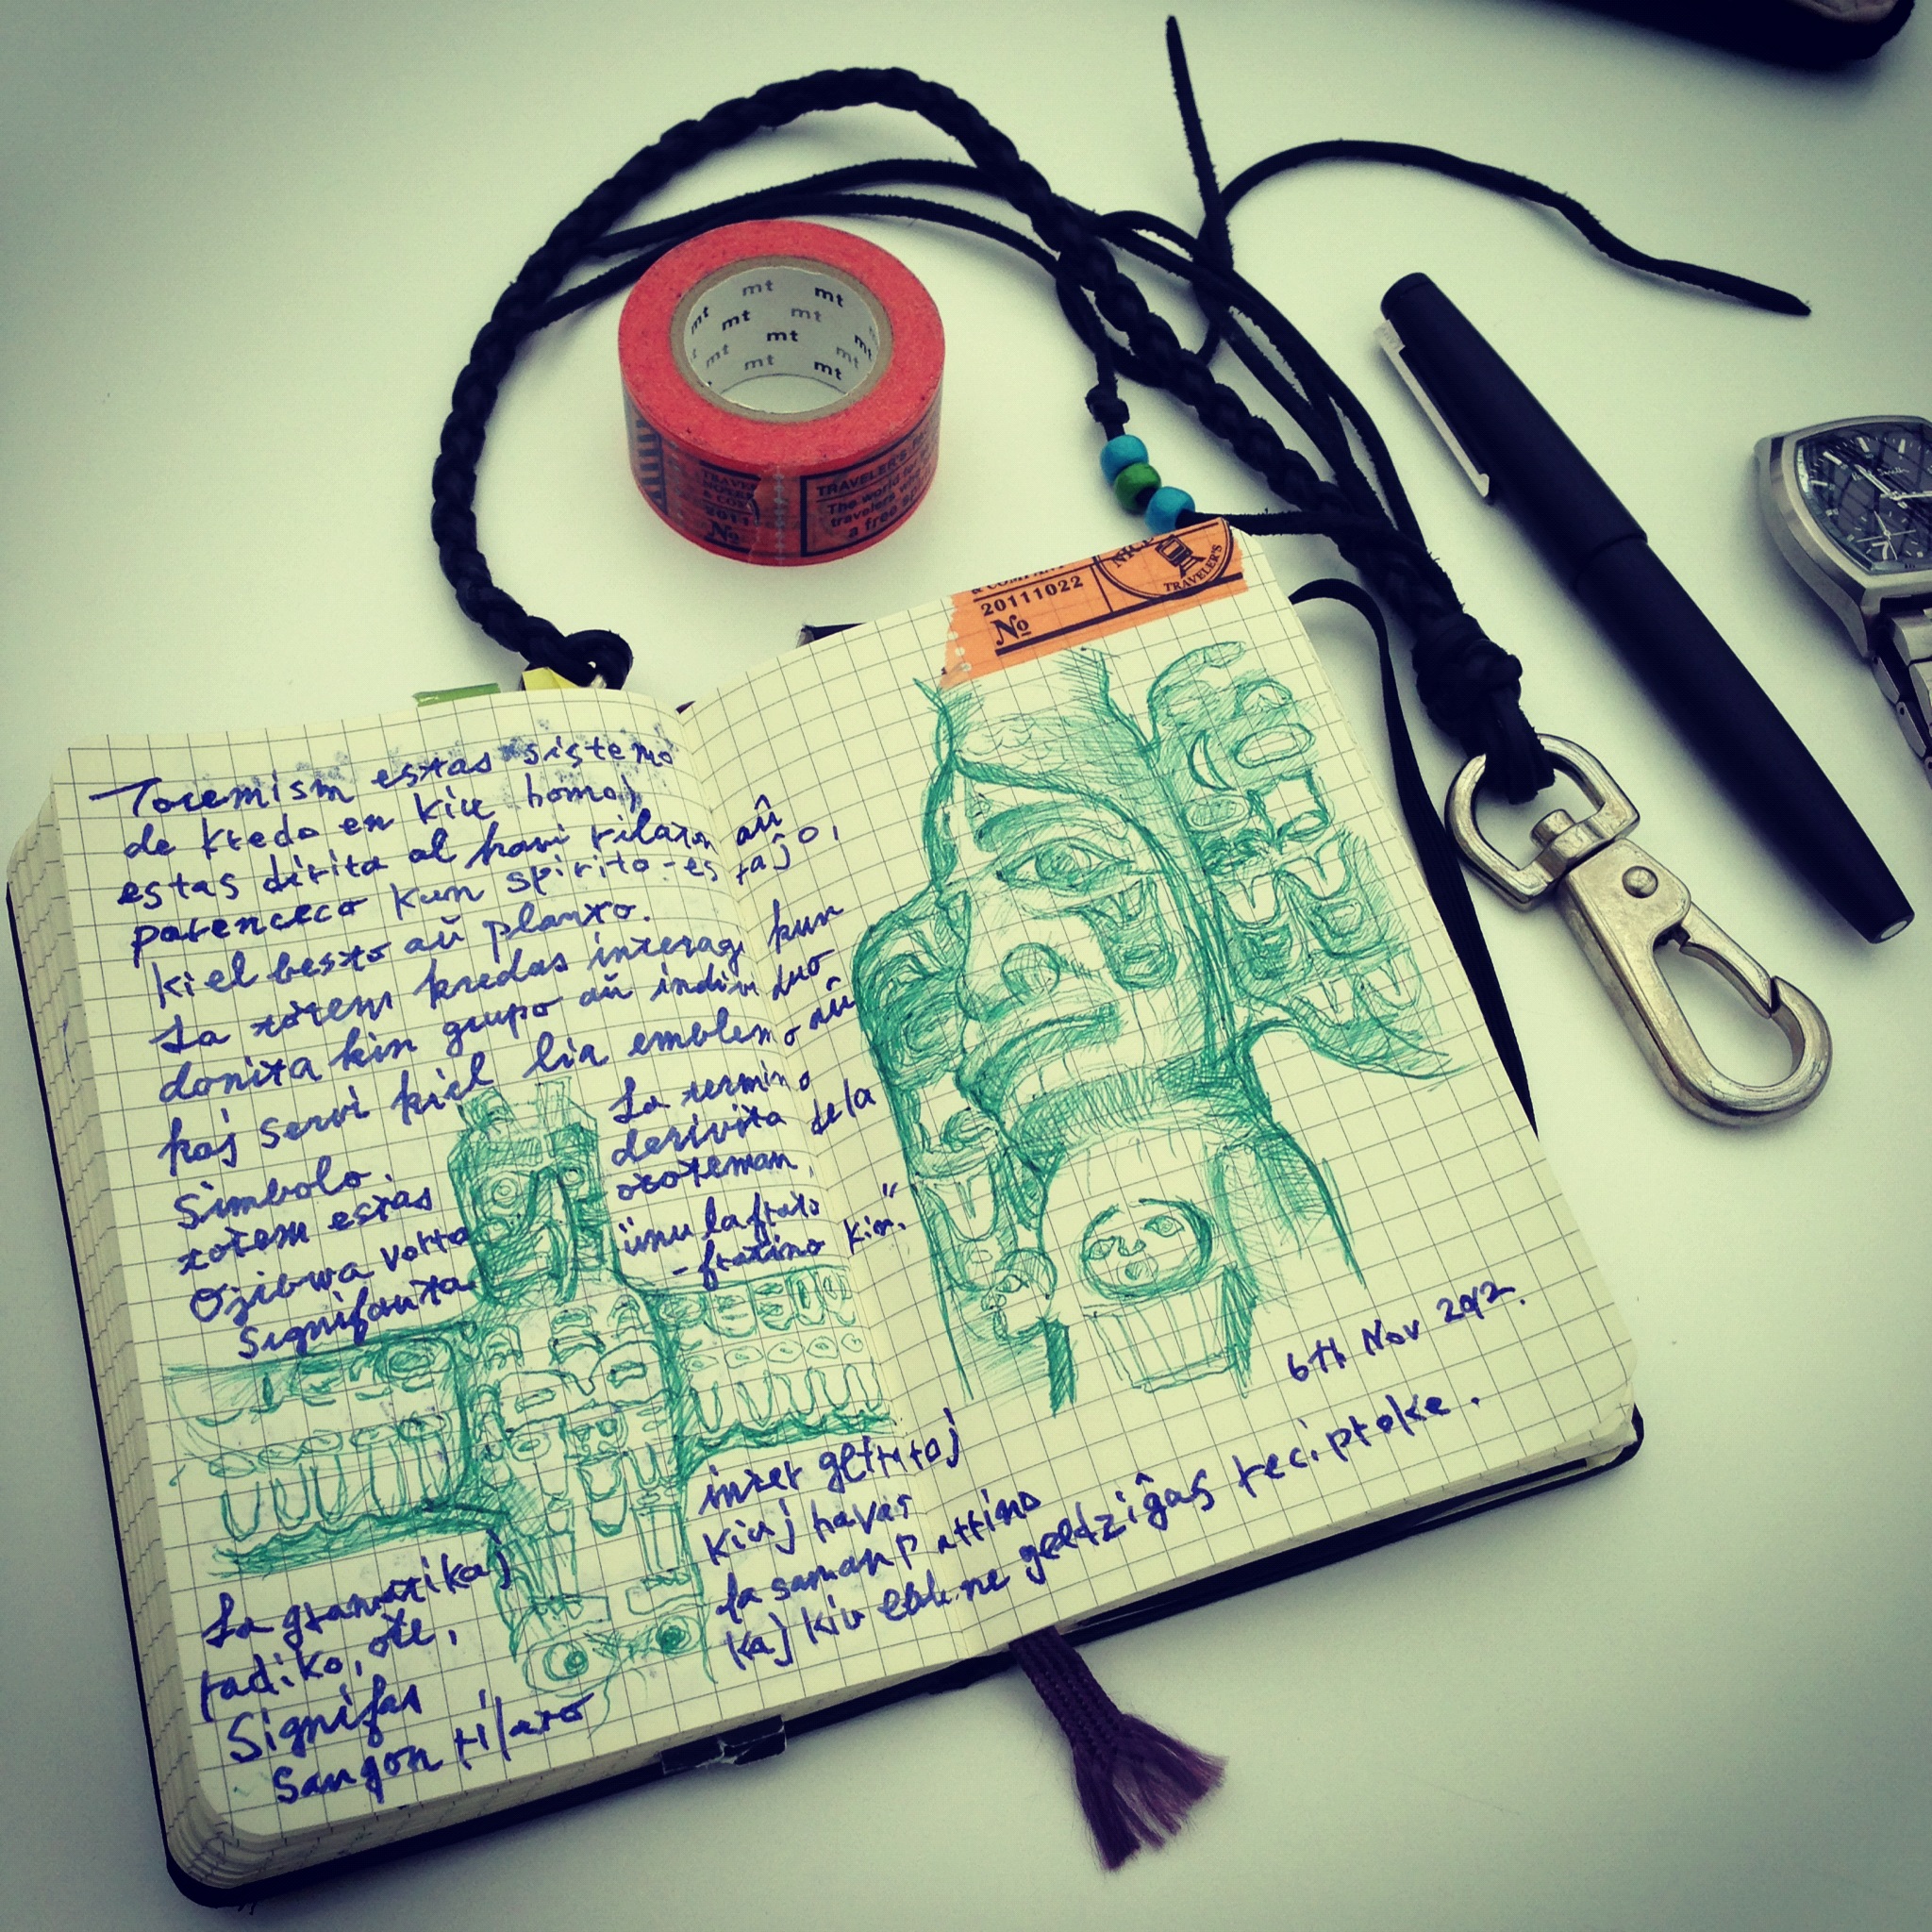 mt mt
mt mt mt mt
mt mt
mt mt mt
TRAVELER'S
The world
travelers
a free
TRAVE
2011
No
NICE
TRAVELER'S
& COMPANY
20111022
No
Totemism estas sistemo
de kredo en kiu homoj
estas dirita al havi rilaton aŭ
parenceco kun spirito-estaĵo,
kiel besto aŭ planto.
La totem kredas interagi kun
donita kin grupo aŭ individuo
kaj servi kiel lia emblemo aŭ
Simbolo.
totem estas
Ojibwa vorto
Signifanta
La termino
derivita de la
ototeman,
"unu la frato
-fratino kin."
La gramatikaj
radiko, ote,
Signifas
Sangon rilato
inter gefratoj
kiuj havas
la saman patrino
kaj kiu eble ne geedziĝas reciproke.
6th Nov 2012.